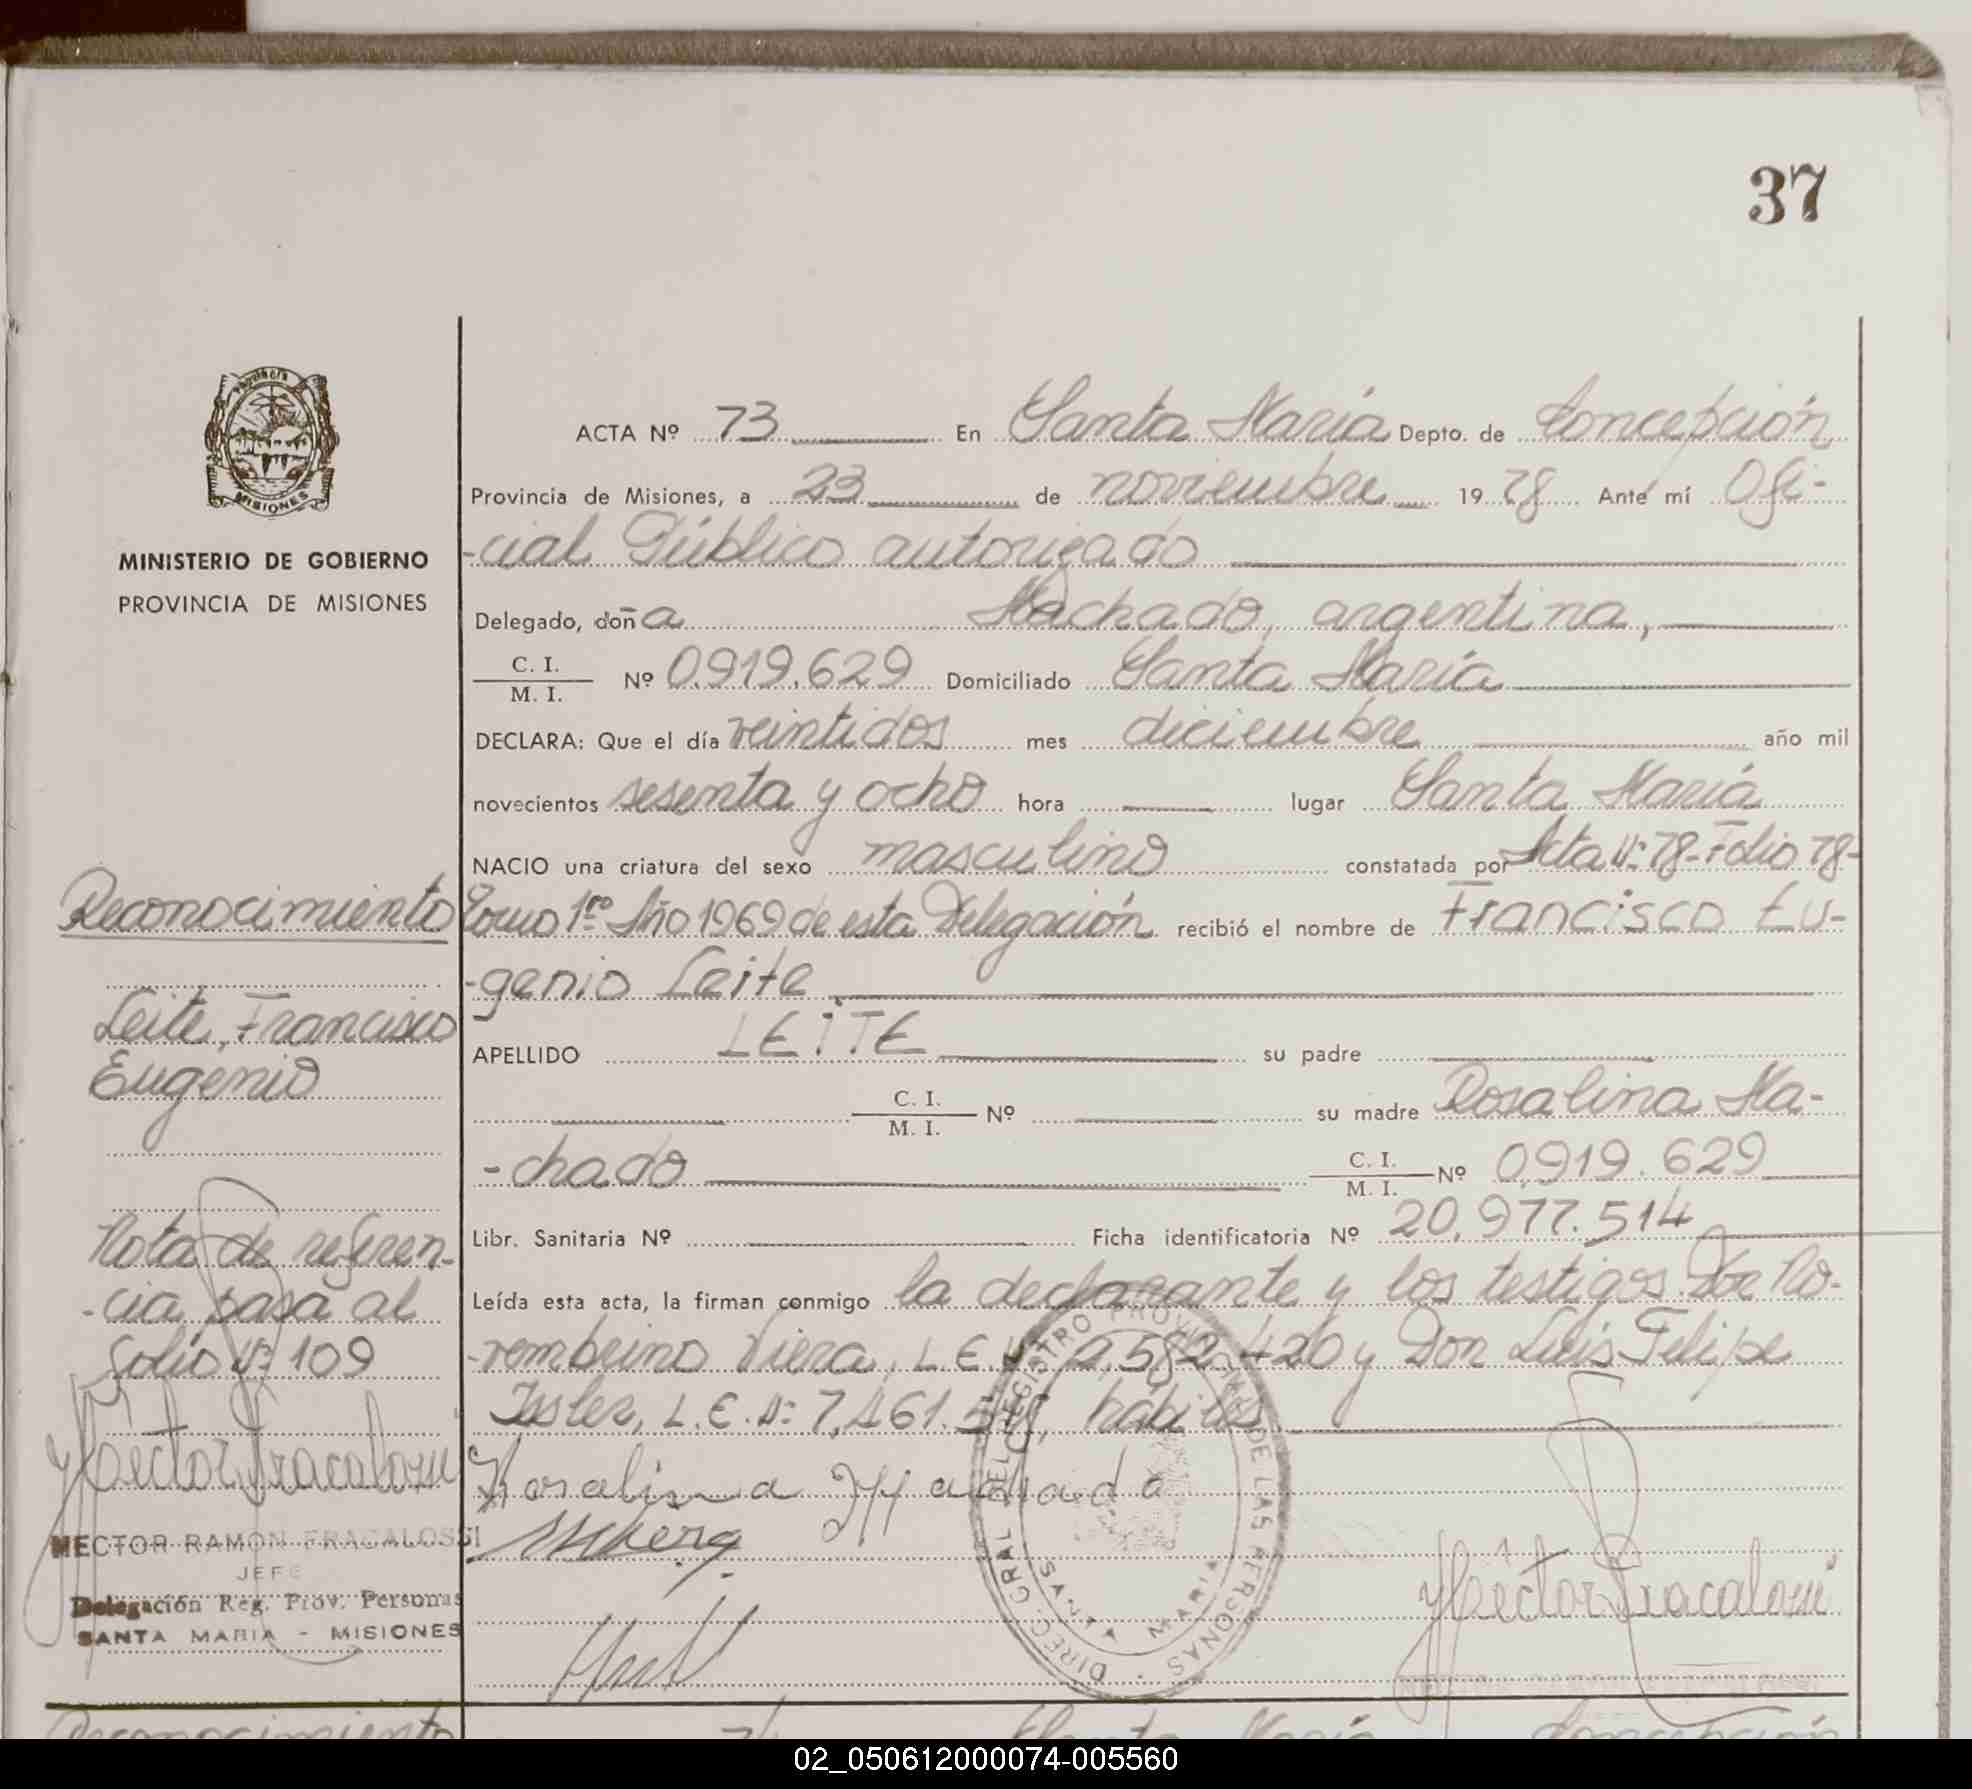 37
Provincia
MISIONES
MINISTERIO DE GOBIERNO
PROVINCIA DE MISIONES
Reconocimiento
Leite, Francisco
Eugenio
Nota de referen-
-cia pasa al
folio Nº 109
Hector Fracalossi
HECTOR RAMON FRACALOSSI
JEFE
Delegación Reg. Prov. Personas
SANTA MARIA - MISIONES
ACTA Nº 73 En Santa María Depto. de Concepción
Provincia de Misiones, a 23 de noviembre 1978 Ante mí Ofi-
-cial Público autorizado
Delegado, doña Machado, argentina,
C. I.
M. I. Nº 0.919.629 Domiciliado Santa María
DECLARA: Que el día veintidos mes diciembre año mil
novecientos sesenta y ocho hora lugar Santa María
NACIO una criatura del sexo masculino constatada por Acta Nº 78- Folio 78-
Tomo 1ro Año 1969 de esta Delegación recibió el nombre de Francisco Eu-
-genio Leite
APELLIDO LEITE su padre
C. I.
M. I. Nº su madre Rosalina Ma-
-chado C. I.
M. I. Nº 0.919.629
Libr. Sanitaria Nº Ficha identificatoria Nº 20.977.514
Leída esta acta, la firman conmigo la declarante y los testigos Don No-
-rembrino Viera, L.E. Nº 2.582.420 y Don Luis Felipe
L.E. Nº 7.461. hábiles
Rosalina Machado
Hector Fracalossi
DIREC. GRAL. DEL REGISTRO PROVINCIAL DE LAS PERSONAS
SANTA MARIA
Reconocimiento 74 Santa María Concepción
02_050612000074-005560